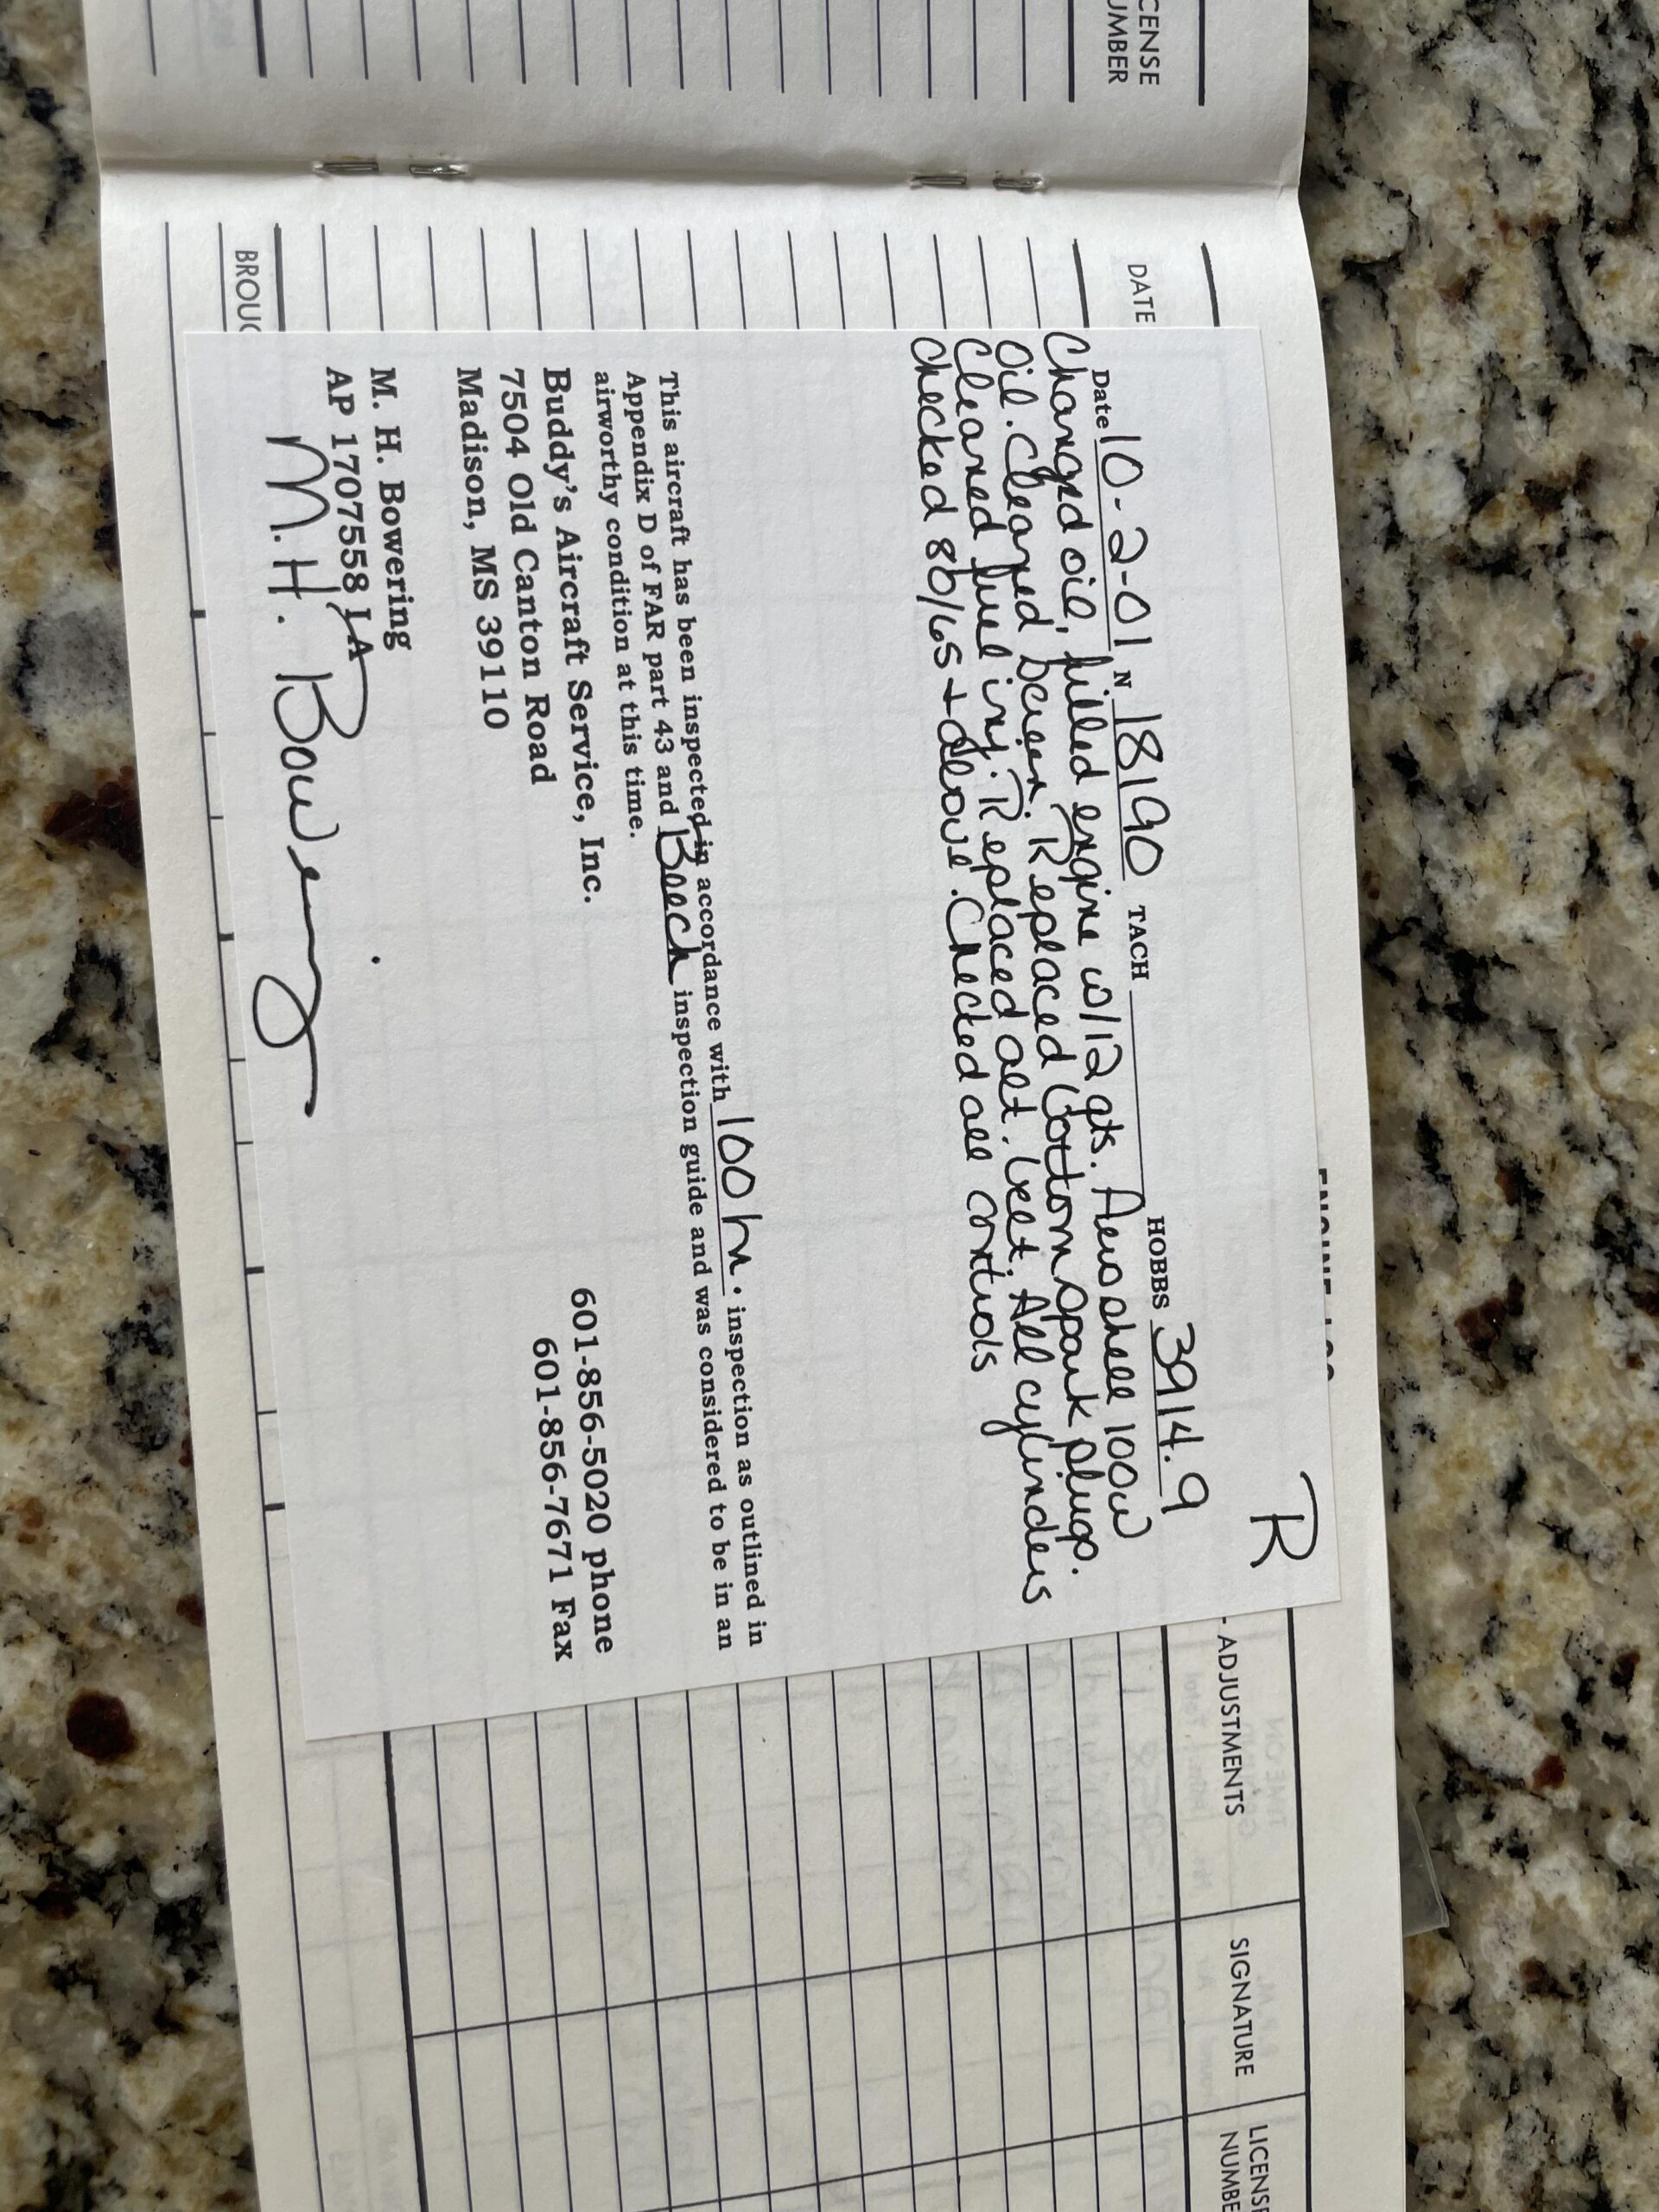 LICENSE
NUMBER
DATE
ADJUSTMENTS
SIGNATURE
LICENSE
NUMBE
R
Date 10-2-01 N 18190 TACH HOBBS 3914.9
Changed oil, filled engine w/12 qts. Aeroshell 100w
Oil. Cleaned screen. Replaced bottom spark plugs.
Cleaned fuel inj. Replaced alt. belt. All cylinders
checked 80/65 + above. Checked all controls
This aircraft has been inspected in accordance with 100 hr. inspection as outlined in
Appendix D of FAR part 43 and Beech inspection guide and was considered to be in an
airworthy condition at this time.
Buddy's Aircraft Service, Inc. 601-856-5020 phone
7504 Old Canton Road 601-856-7671 Fax
Madison, MS 39110
M. H. Bowering
AP 1707558 IA
M.H. Bowering
BROUG